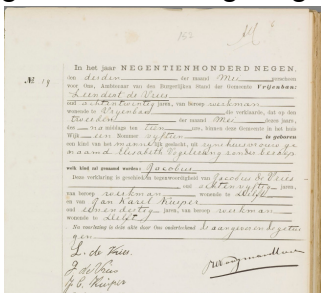 152
In het jaar NEGENTIENHONDERD NEGEN,
№ 19.
den derden der maand Mei verscheen
voor Ons, Ambtenaar van den Burgerlijken Stand der Gemeente Vrijenban:
Leendert de Vries
oud achtentwintig jaren, van beroep werkman
wonende te Vrijenban die verklaarde, dat op den
tweeden der maand Mei dezes jaars,
des namiddags ten een ure, binnen deze Gemeente in het huis
Wijk een Nommer vijftien is geboren
een kind van het mannelijk geslacht, uit zijne huisvrouw ge
naamd Elisabeth Vogelesang zonder beroep
welk kind zal genaamd worden: Jacobus
Deze verklaring is geschied in tegenwoordigheid van Jacobus de Vries
oud achtenvijftig jaren,
van beroep werkman wonende te Delft
en van Jan Karel Kuiper
oud eenendertig jaren, van beroep werkman
wonende te Delft
Na voorlezing is deze akte door Ons onderteekend de aangever en de getui
gen
L. de Vries
J de Vries
J. C. Kuiper